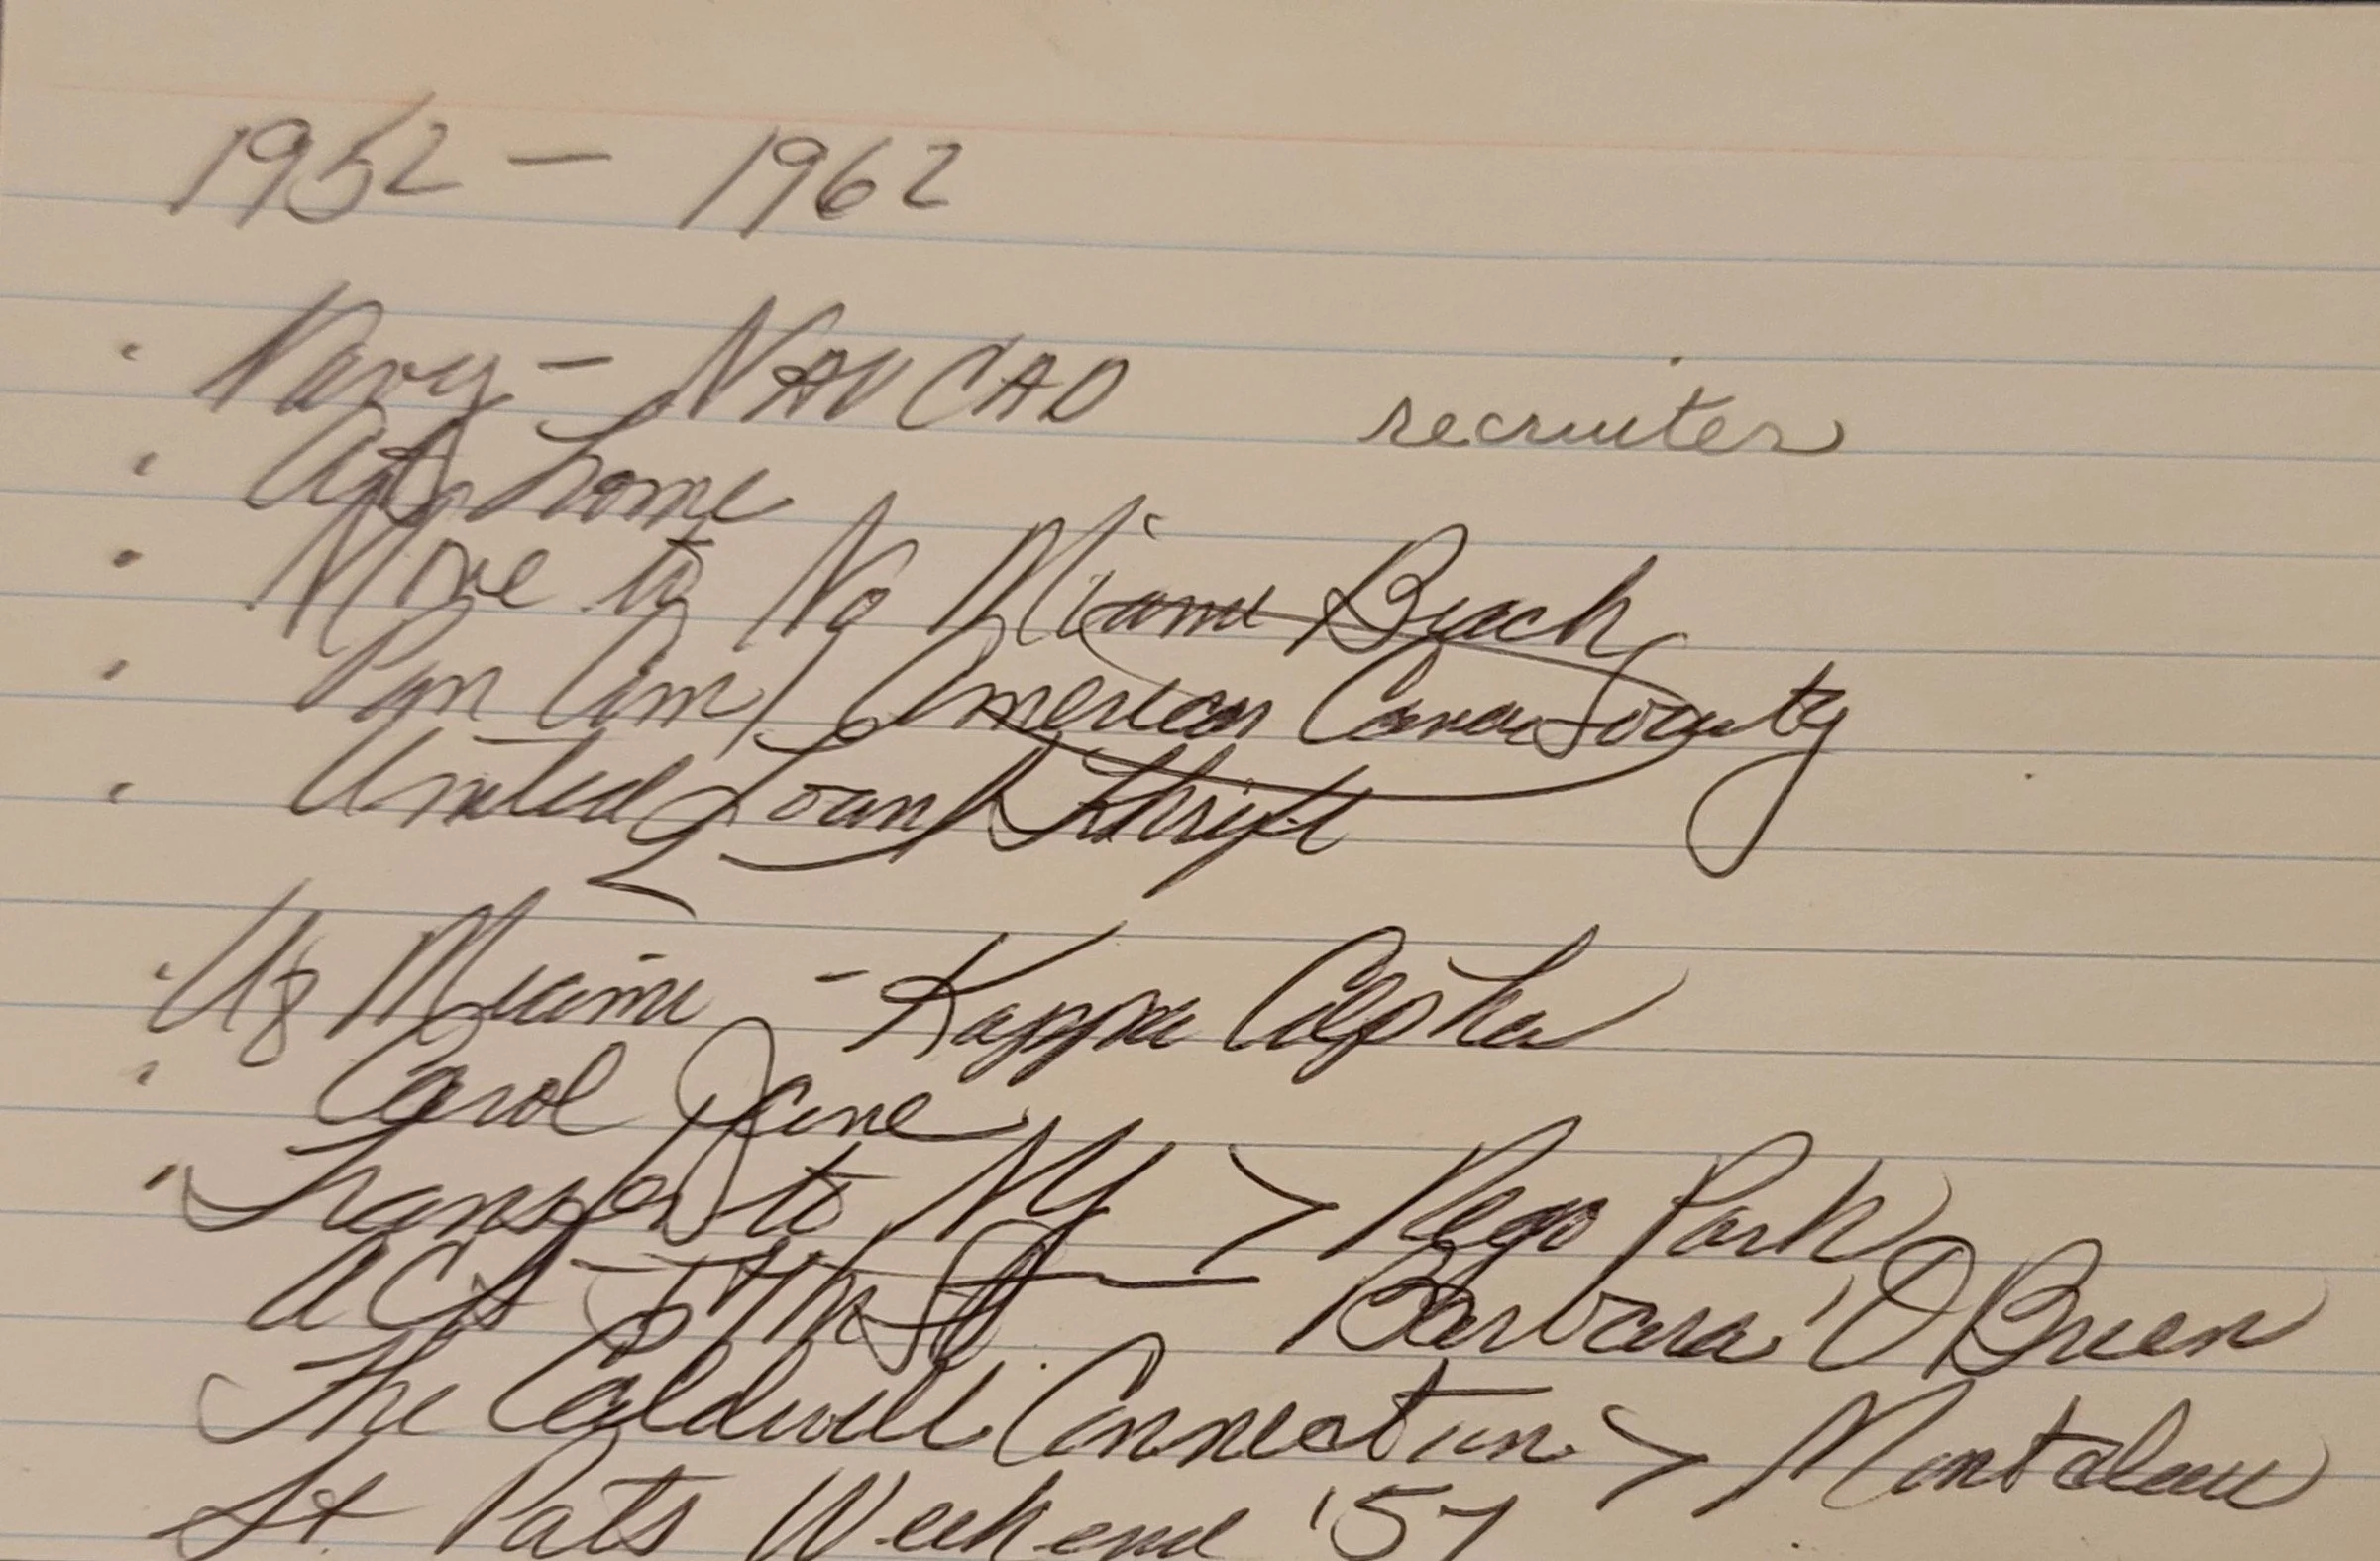 1952 — 1962
• Navy — NAVCAD recruiter
• home
• Move to No Miami Beach
• Pan Am / American Cancer Society
• United Loan & Thrift
• U of Miami - Kappa Alpha
• Carol Jane
• Transfer to NY > Rego Park
ACS — 57th St — Barbara O'Brien
The Caldwell Connection > Montclair
St Pats Weekend '57